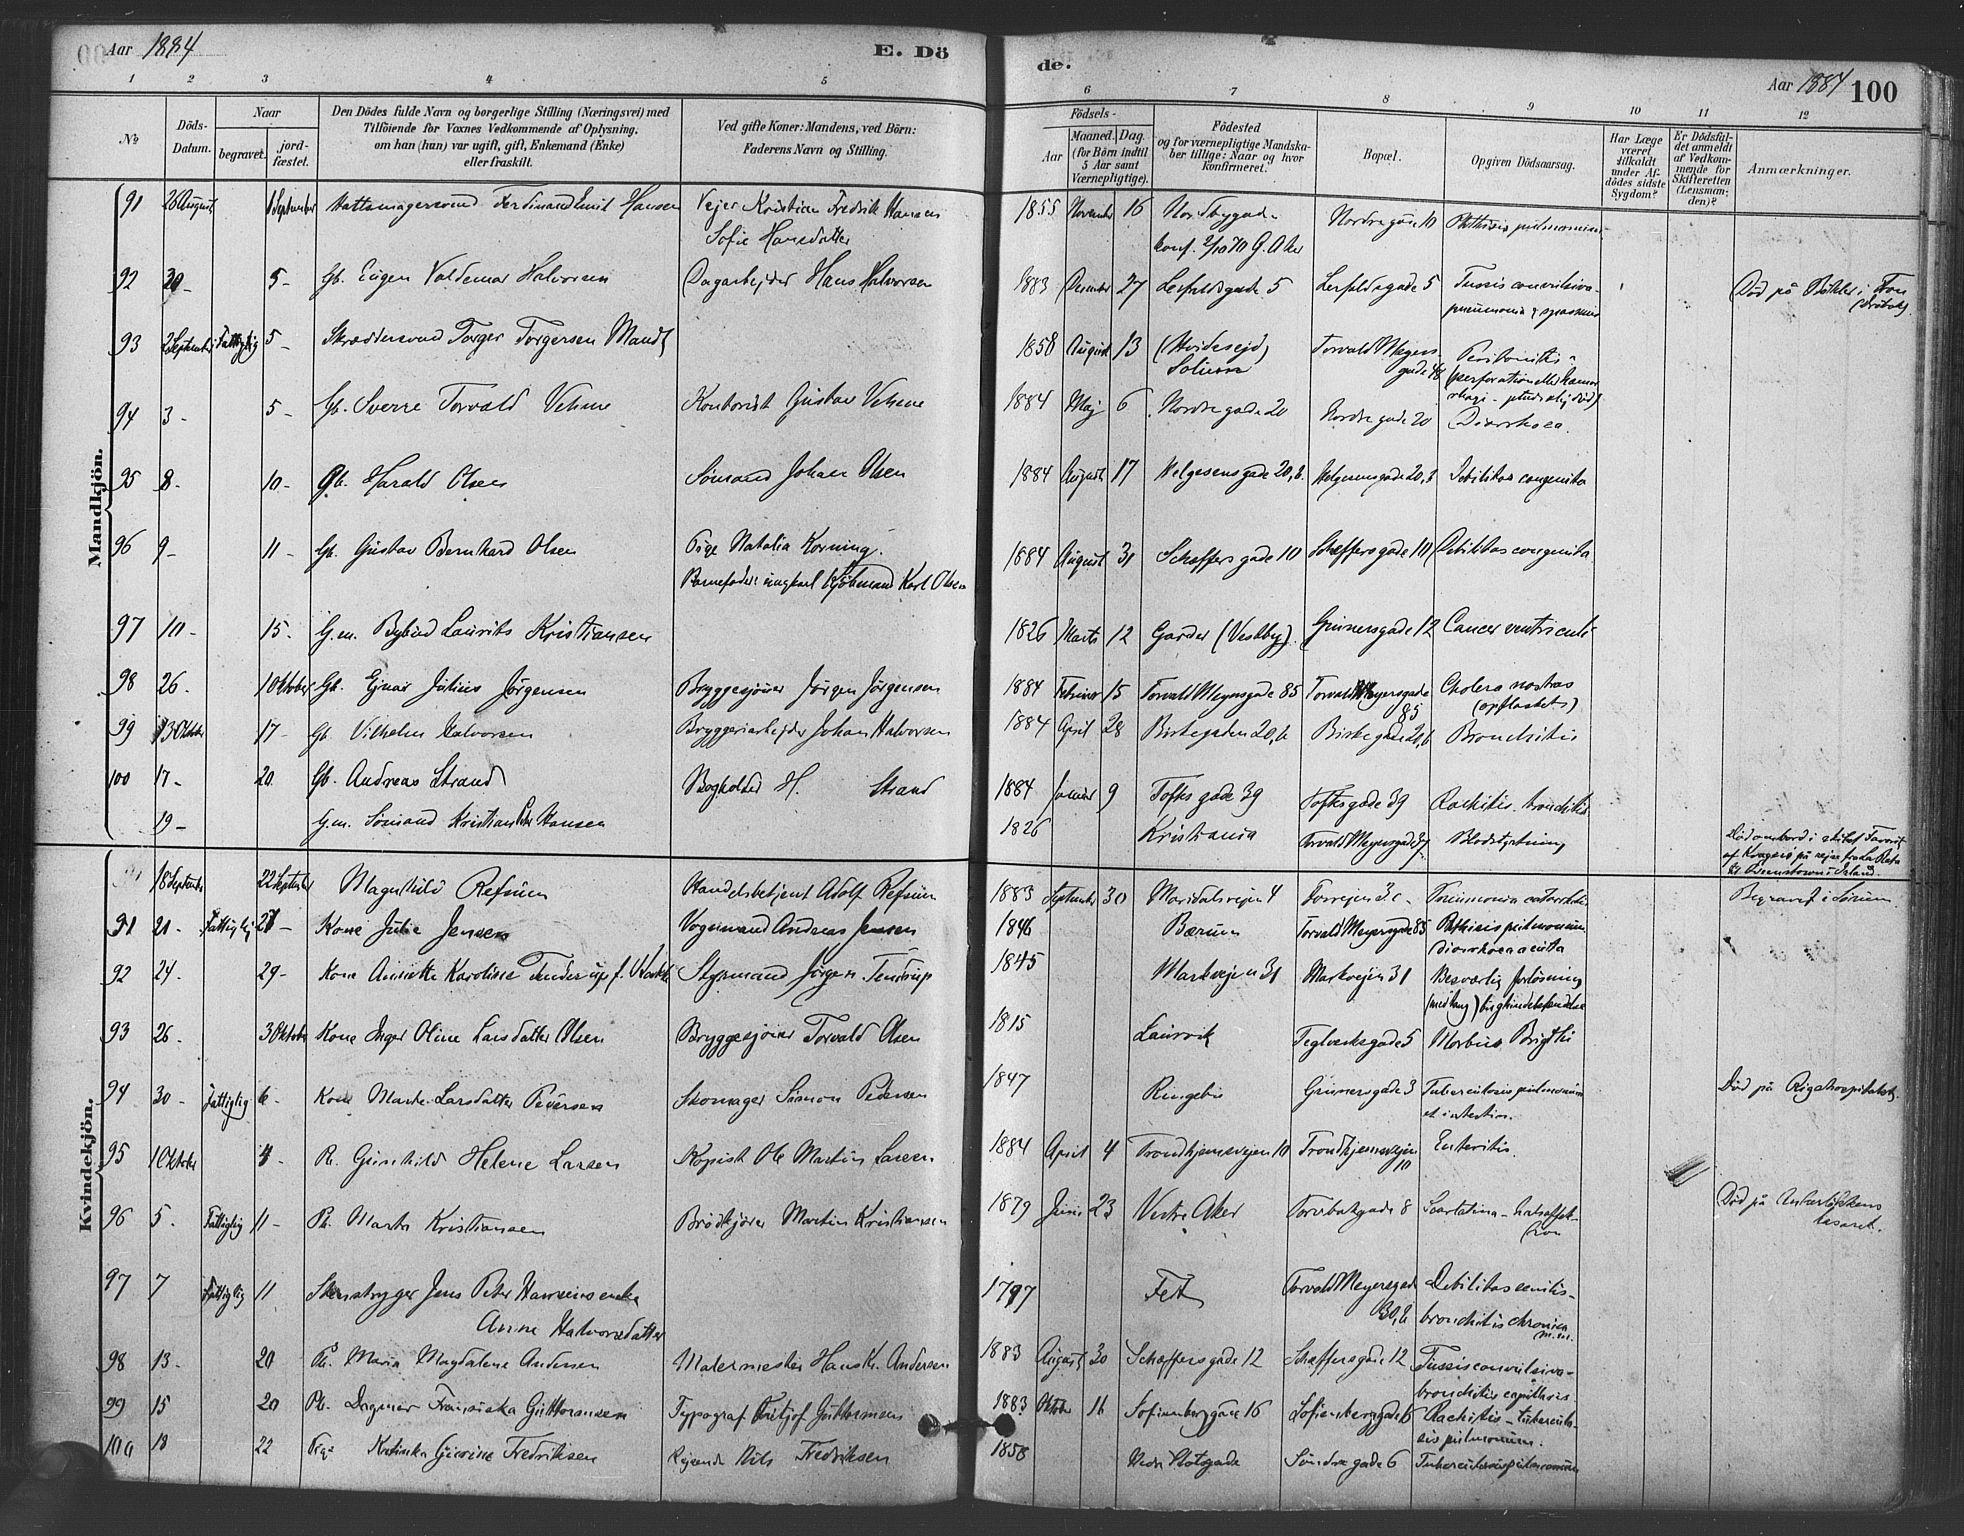 Aar 1884
E. Dö
de.
Aar 1884 100
1 2 3 4 5 6 7 8 9 10 11 12
No
Döds-Datum.
Naar
begravet.
jord-fæstet.
Den Dödes fulde Navn og borgerlige Stilling (Næringsvei) med
Tilföiende for Voxnes Vedkommende af Oplysning,
om han (hun) var ugift, gift, Enkemand (Enke)
eller fraskilt.
Ved gifte Koner: Mandens, ved Börn:
Faderens Navn og Stilling.
Födsels-
Aar
Maaned. Dag.
(for Börn indtil
5 Aar samt
Værnepligtige).
Födested
og for værnepligtige Mandska-
ber tillige: Naar og hvor
konfirmeret.
Bopæl.
Opgiven Dödsaarsag.
Har Læge
været
tilkaldt
under Af-
dödes sidste
Sygdom?
Er Dödsfal-
det anmeldt
af Vedkom-
mende for
Skifteretten
(Lensman-
den)?
Anmærkninger.
Mandkjön.
91 26 August 1 September Hattemagersvend Ferdinand Emil Hansen Vejer Kristian Fredrik Hansen 1855 November 16 Nordre gade 10 Phthisis pulmonum
Sofie Hansdatter konf. 2/10 70 G. Aker
92 5- Gb. Eugen Valdemar Halvorsen Dagarbejder Hans Halvorsen 1883 December 27 Lerfaldsgade 5 Lerfaldsgade 5 Tussis convulsiva- Död på
pneumonia & spasmus
93 2 September Fattiglig 5- Skræddersvend Torger Torgersen Mandt 1858 August 13 (Hvidesejd) Torvald Meyers Peritonitis
Solum gade 48 (perforation eller
94 3- 5- Gb. Sverre Torvald Vehme Kontorist Gustav Vehme 1884 Maj 6 Nordre gade 20 Nordre gade 20 Diarrhoea.
95 8- 10- Gb. Harald Olsen Sömand Johan Olsen 1884 August 17 Helgesensgade 20,b. Helgesensgade 20,b Debilitas congenita
96 9- 11- Gb. Gustav Bernhard Olsen Pige Natalia Korning. 1884 August 31 Schæffers gade 10 Schæffersgade 10 Debilitas congenita
Barnefader: ungkarl Kjöbmand Karl Olsen
97 10- 15- G.m. Bybud Laurits Kristiansen 1826 Marts 12 Garder (Vestby). Grünersgade 12 Cancer ventriculi
98 26- 1 Oktober Gb. Ejnar Julius Jørgensen Bryggesjouer Jørgen Jørgensen 1884 Februar 15 Torvald Meyersgade 85 Torvald Meyersgade Cholera nostras
85 (opflasket)
99 13 Oktober 17- Gb. Vilhelm Halvorsen Bryggeriarbejder Johan Halvorsen 1884 April 28 Birkegaden 20,b Birkegaden 20,b Bronchitis
100 17- 20 Gb. Andreas Strand Bogholder H. Strand 1884 Januar 9 Toftes gade 39 Toftes gade 39 Rachitis. bronchitis
19- G.m. Sömand Kristian Hansen 1826 Kristiania Torvald Meyersgade 7 Blodstyrtning Död ombord i skibet Favorit
af Kragerö på rejse fra La Plata
til Queenstown i Irland.
Kvindekjön.
18 September 22 September Magnhild Refsum Handelsbetjent Adolf Refsum 1883 September 30 Maridalsvejen 4 Pneumonia catarrhalis Begravet i Sörum
91 21- Fattiglig Kone Julie Jensen Vognmand Andreas Jensen 1846 Bærum Torvald Meyersgade 85 Phthisis pulmonum
Diarrhoea acuta
92 24- 29- Kone Annette Karoline Tenderup f. Styrmand Jørgen Tenderup 1845 Markvejen 31 Markvejen 31 Besværlig forlösning
93 26- 3 Oktober Kone Inger Oline Larsdatter Olsen Bryggesjouer Torvald Olsen 1815 Laurvik Teglverksgade 5 Morbus Brigthi
94 30- Fattiglig 6- Kone Marte Larsdatter Pedersen Skomager Simon Pedersen 1847 Ringebu Grünersgade 3 Tuberculosis pulmonum Död på Rigshospitalet.
et intestin.
95 1 Oktober 4- Pb. Gunhild Helene Larsen Kopist Ole Martin Larsen 1884 April 4 Trondhjemsvejen 10 Trondhjemsvejen Enteritis.
10
96 5- Fattiglig 11- Pb. Marta Kristiansen Brödkjører Martin Kristiansen 1879 Juni 23 Vestre Aker Torvbakgade 8 Scarlatina- halsaffek- Död på Ankerlökkens
tion lasaret.
97 7 Fattiglig 11 Skorstensfejer Jens Peter Hansens enke 1797 Fet Torvald Meyersgade Debilitas senilis-
Anne Halvorsdatter 30,b bronchitis chronica
98 13- 20 Pb. Maria Magdalene Andersen Malermester Hans Kr. Andersen 1883 August 30 Schæffersgade 12 Schæffersgade 12 Tussis convulsiva-
bronchitis capillaris
99 15 20 Pb. Dagmar Fransiska Guttormsen Typograf Fritjof Guttormsen 1883 Oktober 16 Sofienberggade 16 Sofienberggade 16 Rachitis - tubercul-
sis pulmonum.
100 18 22 Pige Fredriksen Rejsende Nils Fredriksen 1858 Nedre Slotsgade Söndre gade 6 Tuberculosis pulmonum